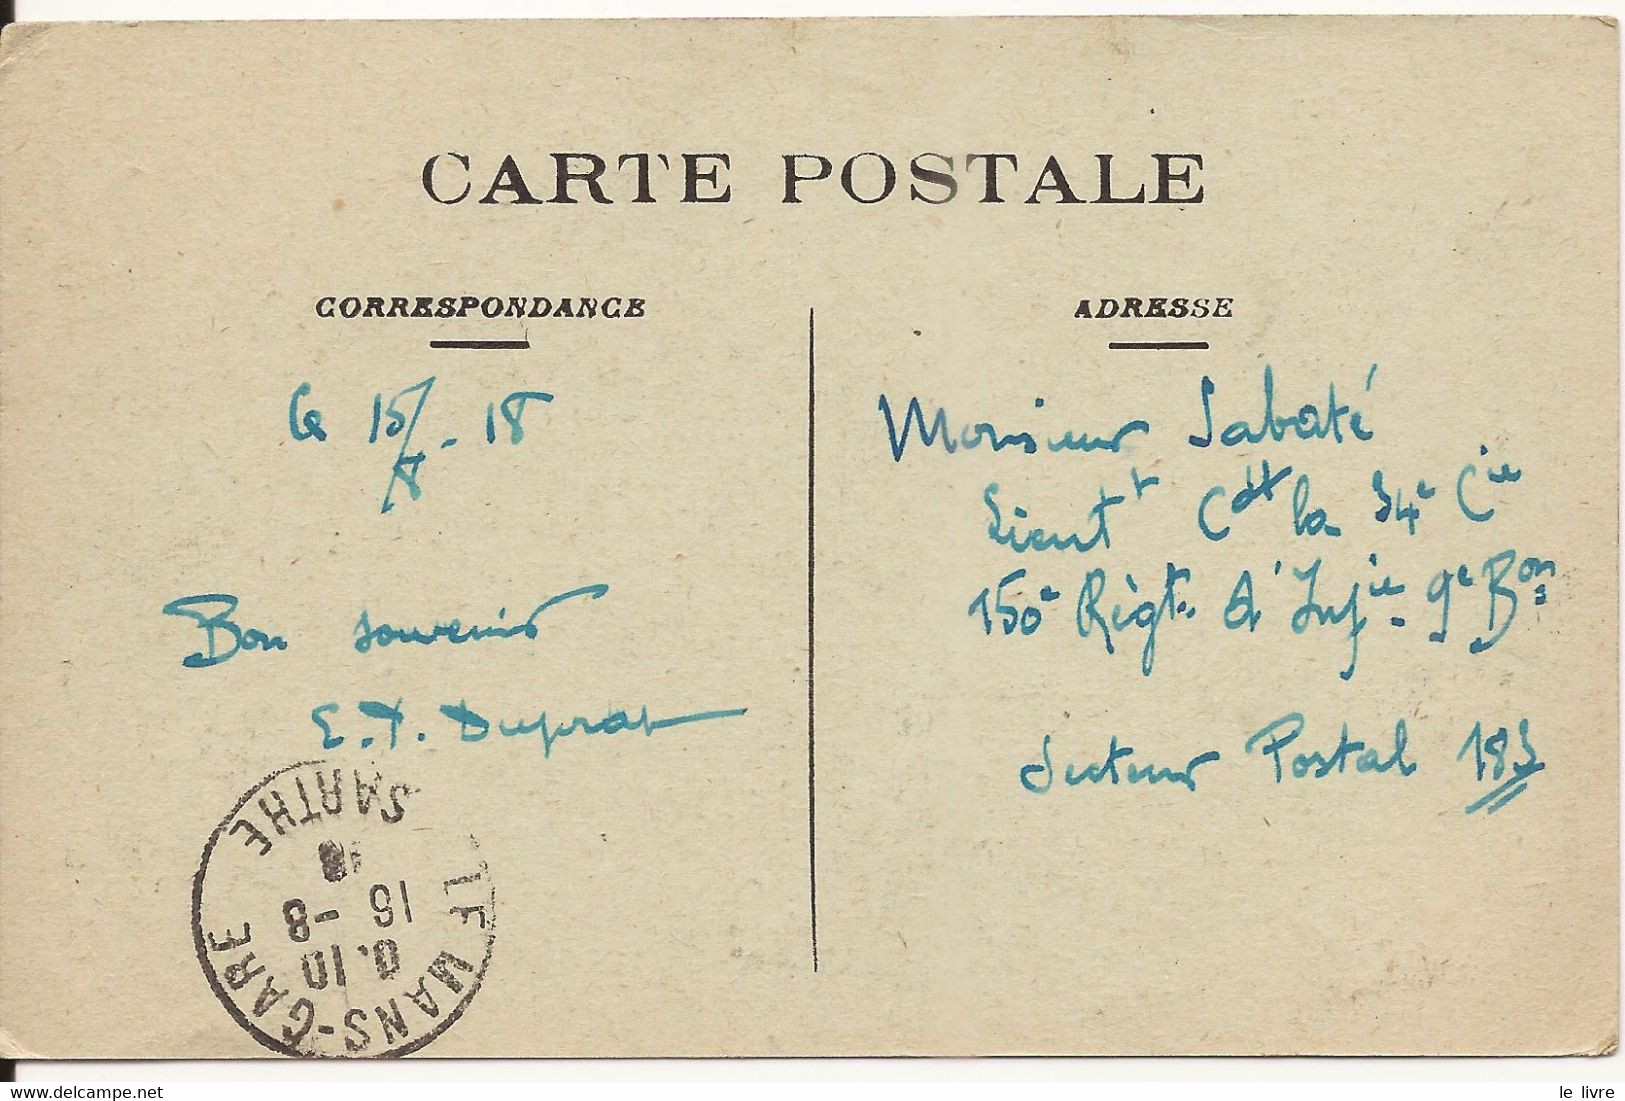 CARTE POSTALE
CORRESPONDANCE
Le 15/8 - 18
Bon souvenir
E.T. Duprat
ADRESSE
Monsieur Sabaté
Lieut^t C^dt la 34^e C^ie
150^e Règ^t. d'Inf^ie. 9^e B^on
Secteur Postal 183
LE MANS-GARE
0.10
16 -8
18
SARTHE
www.delcampe.net
le livre